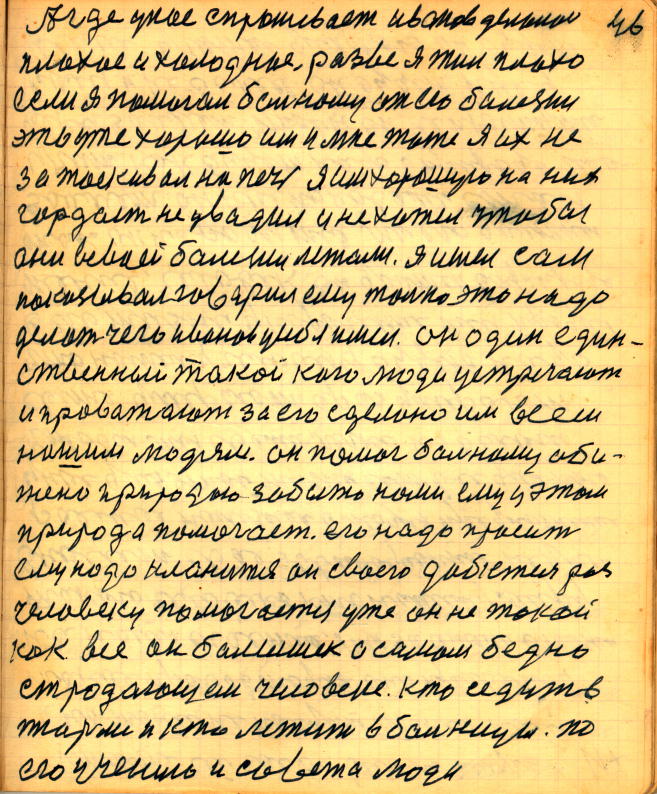 А где умное спрошивает ивонов деланое 46
плохое и холодное, разве я жил плохо
если я помогал болному от его болезни
это уже хорошо им и мне тоже я их не
затаскивал на печ я им хорошую на них
гордаст не увадил и не хотел чтобы
они в своей болезни лежали. я имел сам
показывал говарил ему толко это надо
делат чего ивонов имел. он один един-
ственный такой кого люди устречают
и проважают за его сделоно им всем
нашим людям. он помог болному оби-
жено природаю забыто нами ему у этом
природа помогает. его надо просит
ему надо кланится он своего добется раз
человеку помогается уже он не такой
как все он балешек о самом бедно
стродающем человеке. кто седить в
тюрми и кто лежить в болницы. по
его учению и совета люди